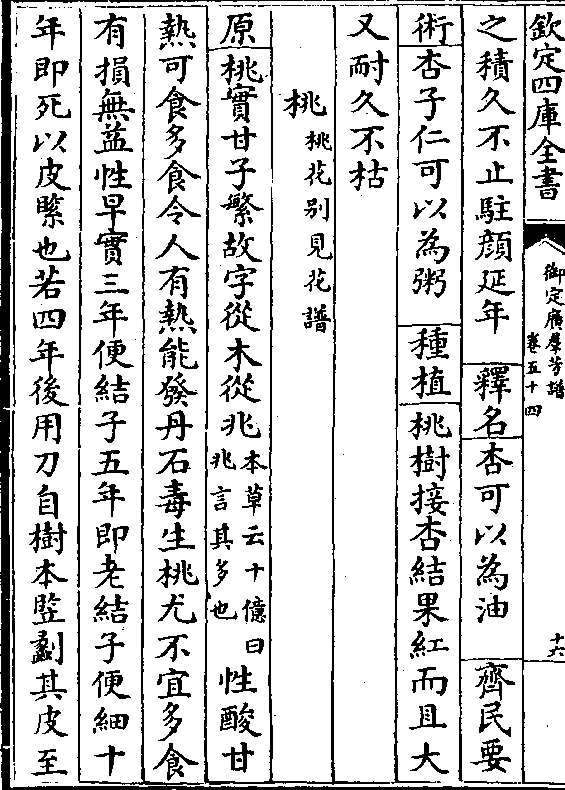 欽定四庫全書
御定廣羣芳譜
卷五十四
十六
之積久不止駐顔延年 釋名 杏可以為油 齊民要
術 杏子仁可以為粥 種植 桃樹接杏結果紅而且大
又耐久不枯
桃 桃花别見花譜
原 桃實甘子繁故字從木從兆 本草云十億曰兆言其多也 性酸甘
熱可食多食令人有熱能發丹石毒生桃尤不宜多食
有損無益性早實三年便結子五年即老結子便細十
年即死以皮緊也若四年後用刀自樹本竪劙其皮至